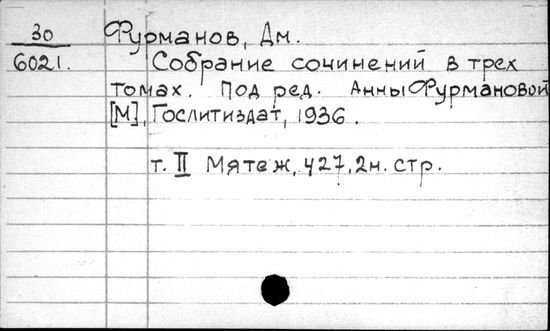 30 Фурманов, Дм.
6021. Собрание сочинений в трех
томах. Под ред. Анны Фурмановой
[М], Гослитиздат, 1936.
т. II Мятеж, 427, 2н. стр.